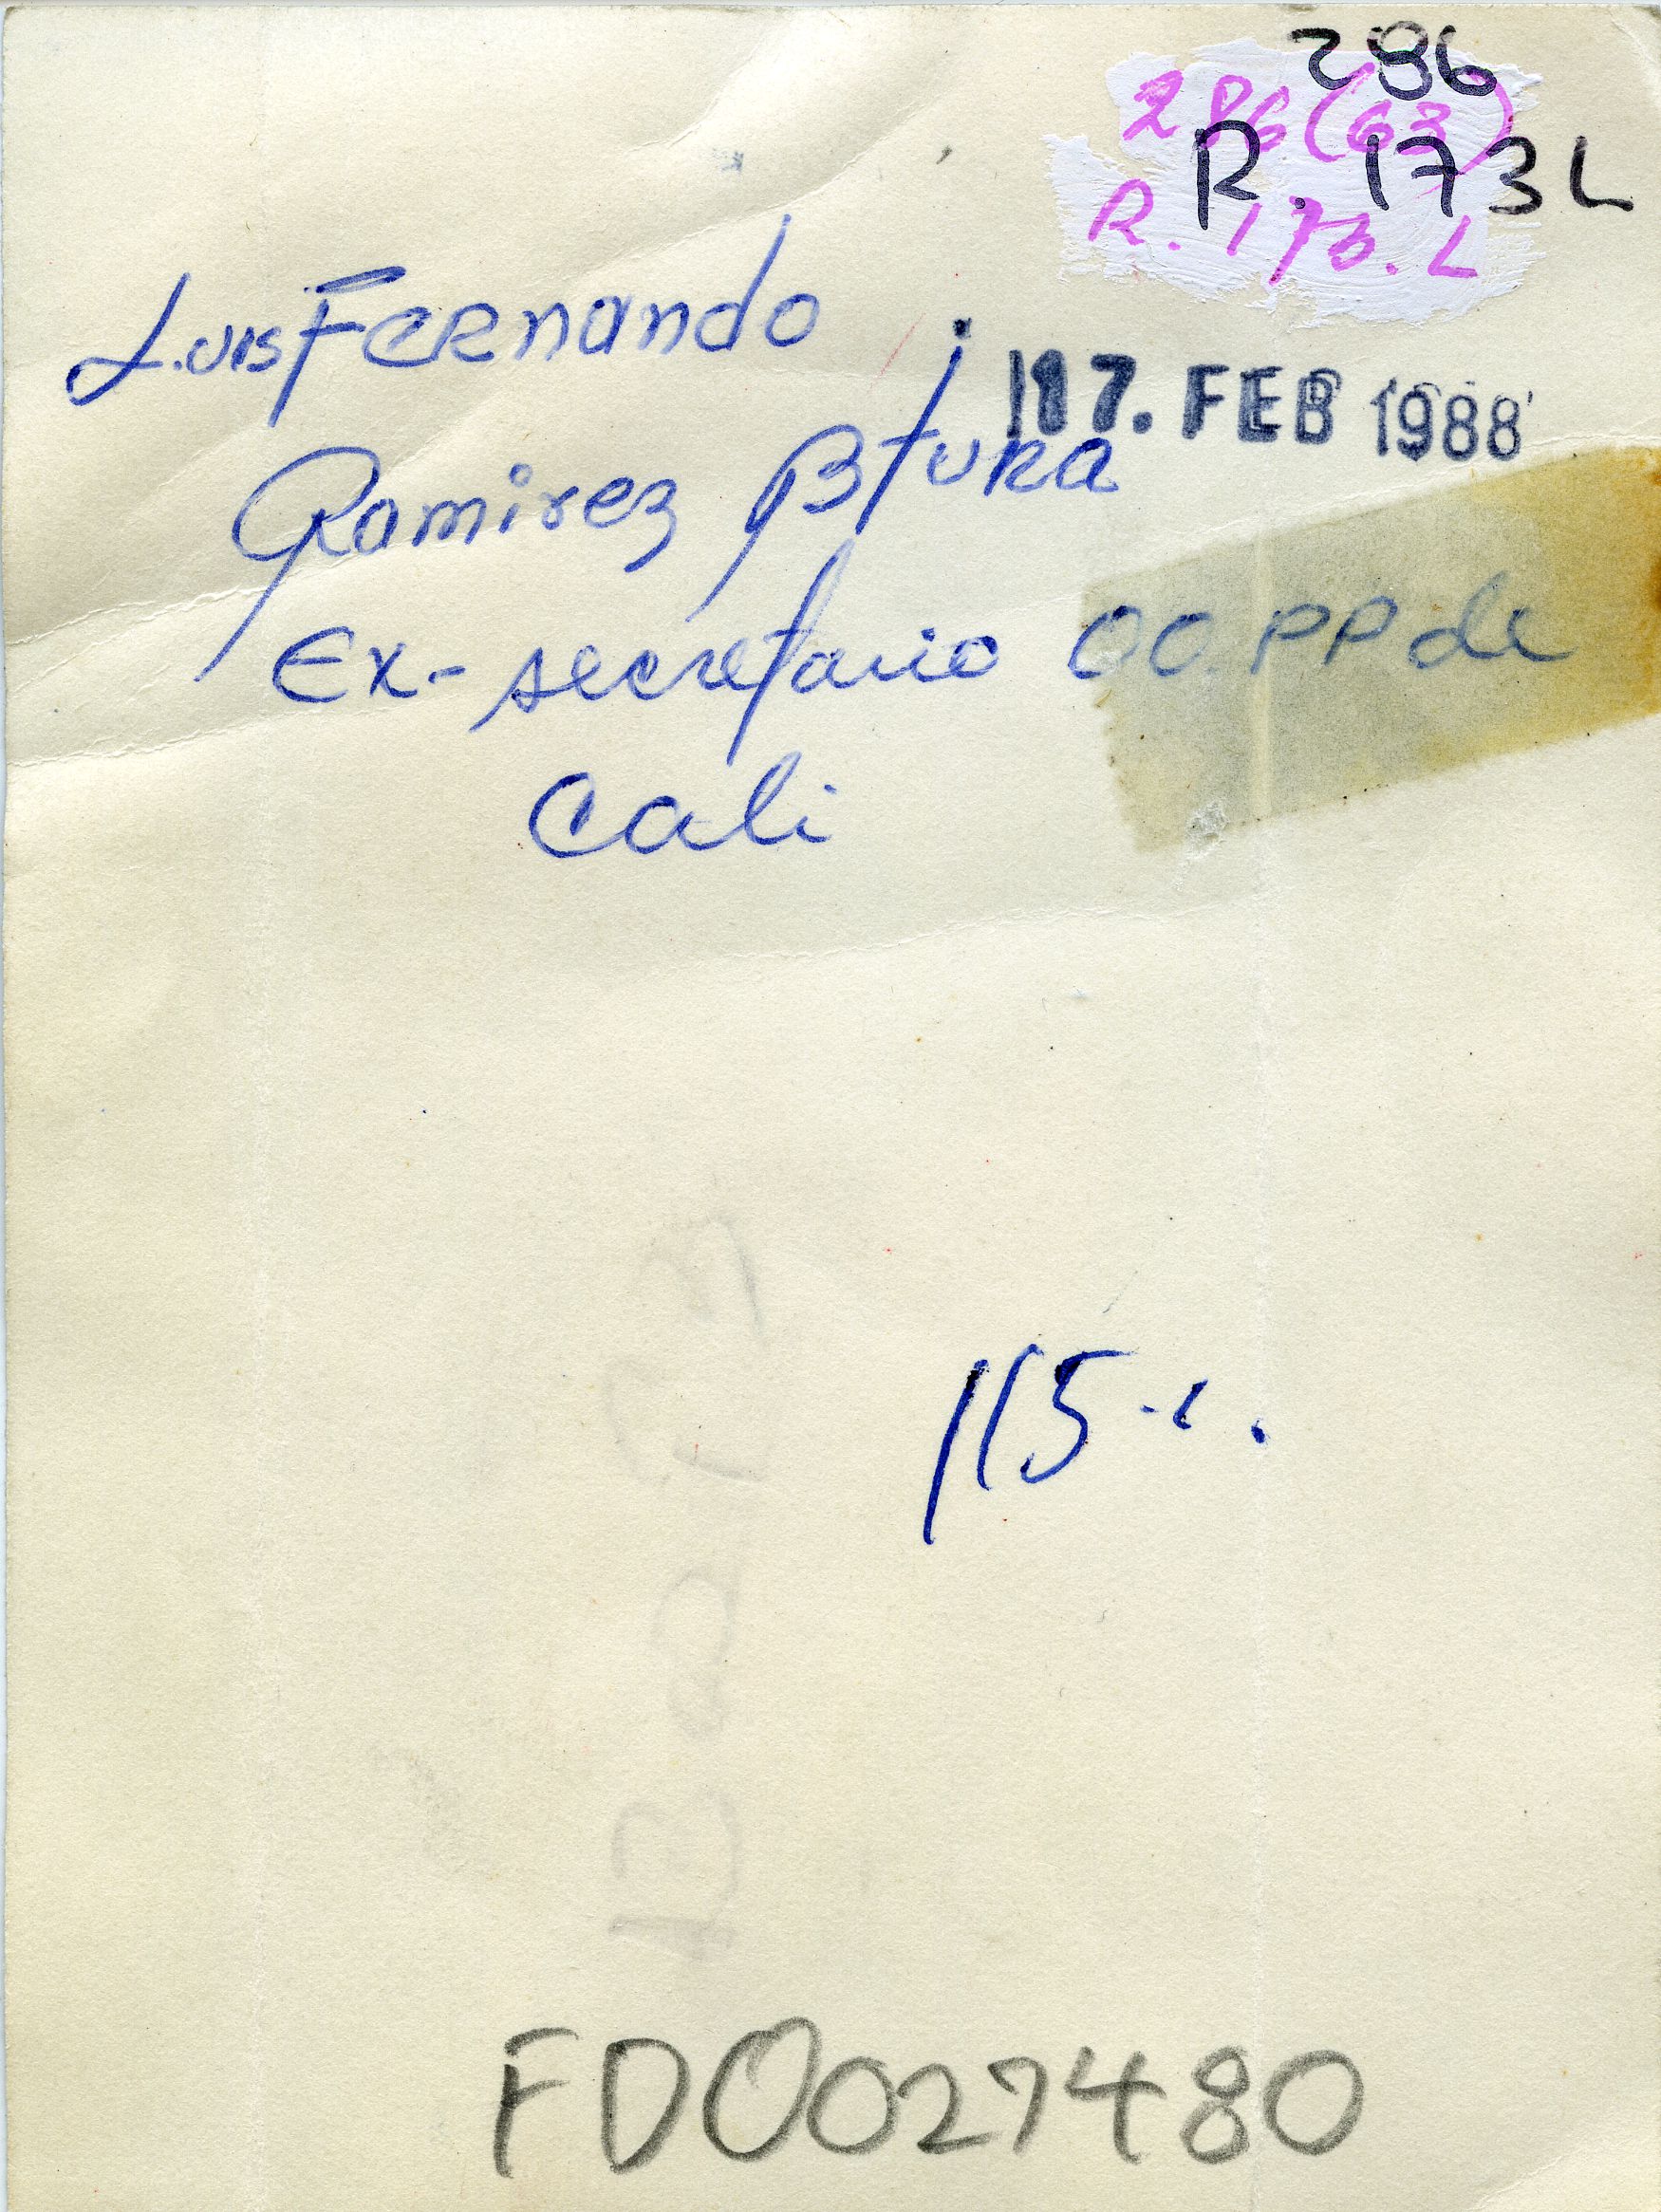 286
R. 173 L
286 (63)
R. 173. L
Luis Fernando
17. FEB 1988
Ramirez Btura
Ex-secretario OO.PP de
Cali
115
FD0027480